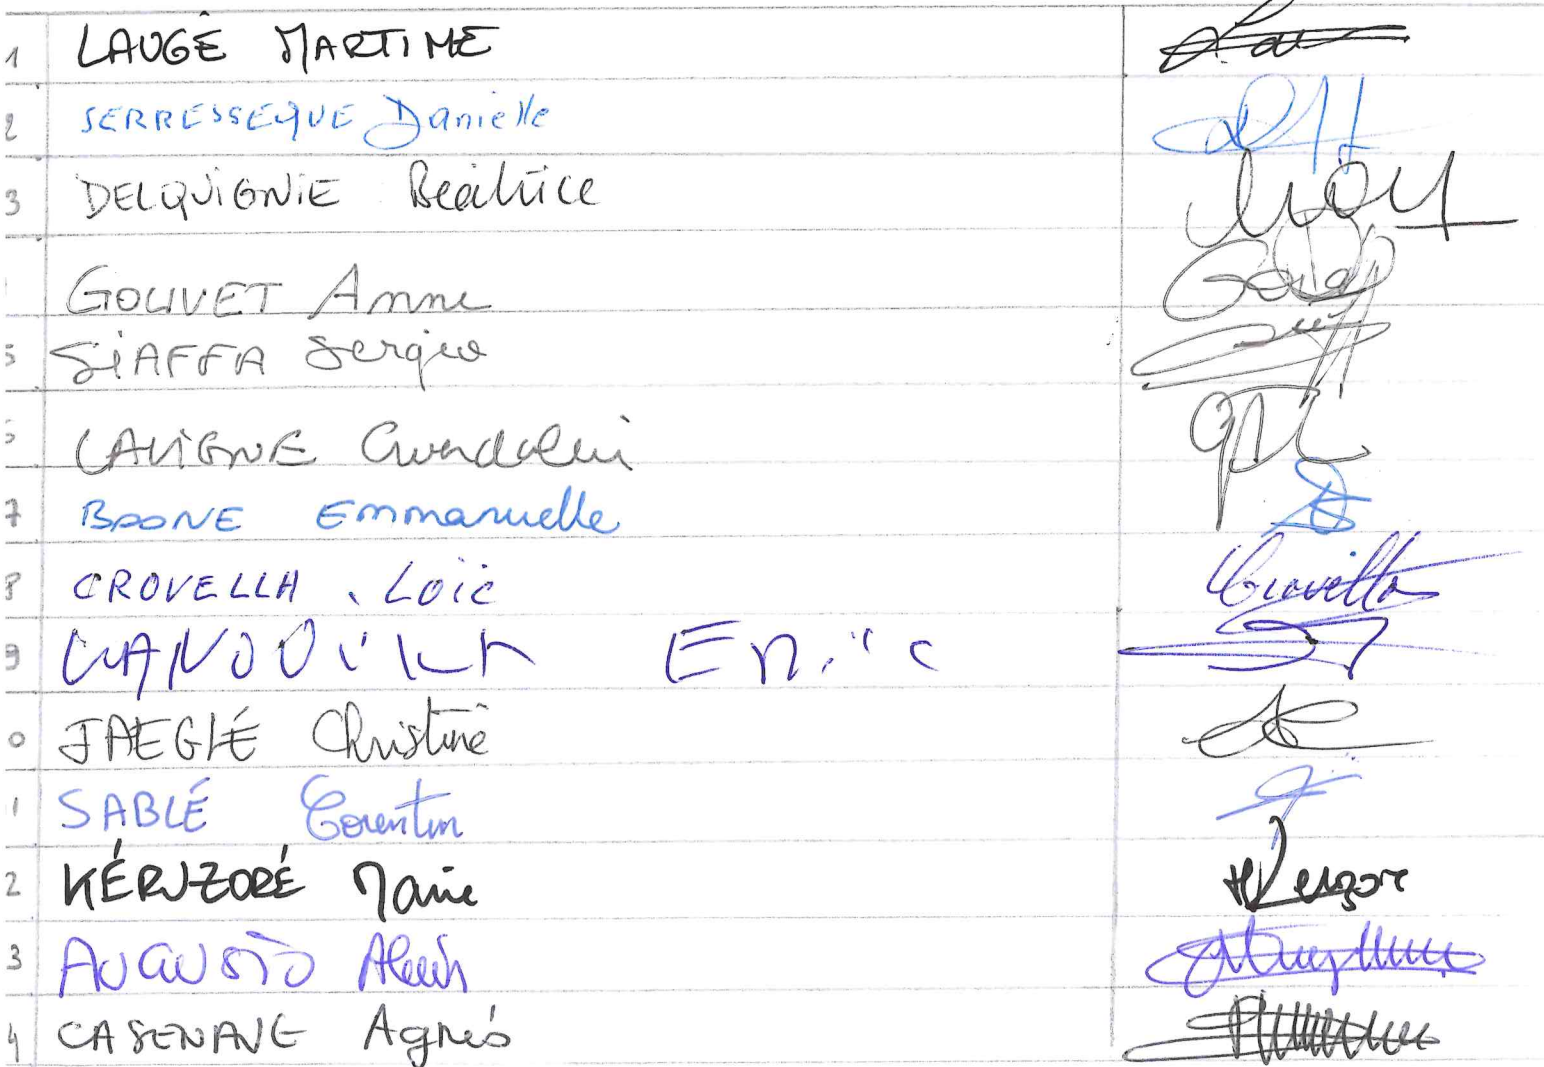 1 LAUGÉ MARTINE
2 SERRESSEQUE Danielle
3 DELQUIGNIE Béatrice
GOUVET Anne
5 SIAFFA Sergio
LAVIGNE Gwendolein
7 BOONE Emmanuelle
8 CROVELLA . Loïc
9 Eric
0 JAEGLÉ Christine
1 SABLÉ Corentin
2 KÉRIZORÉ Marie
3 AUGUSTO Alain
4 CASENAVE Agnès